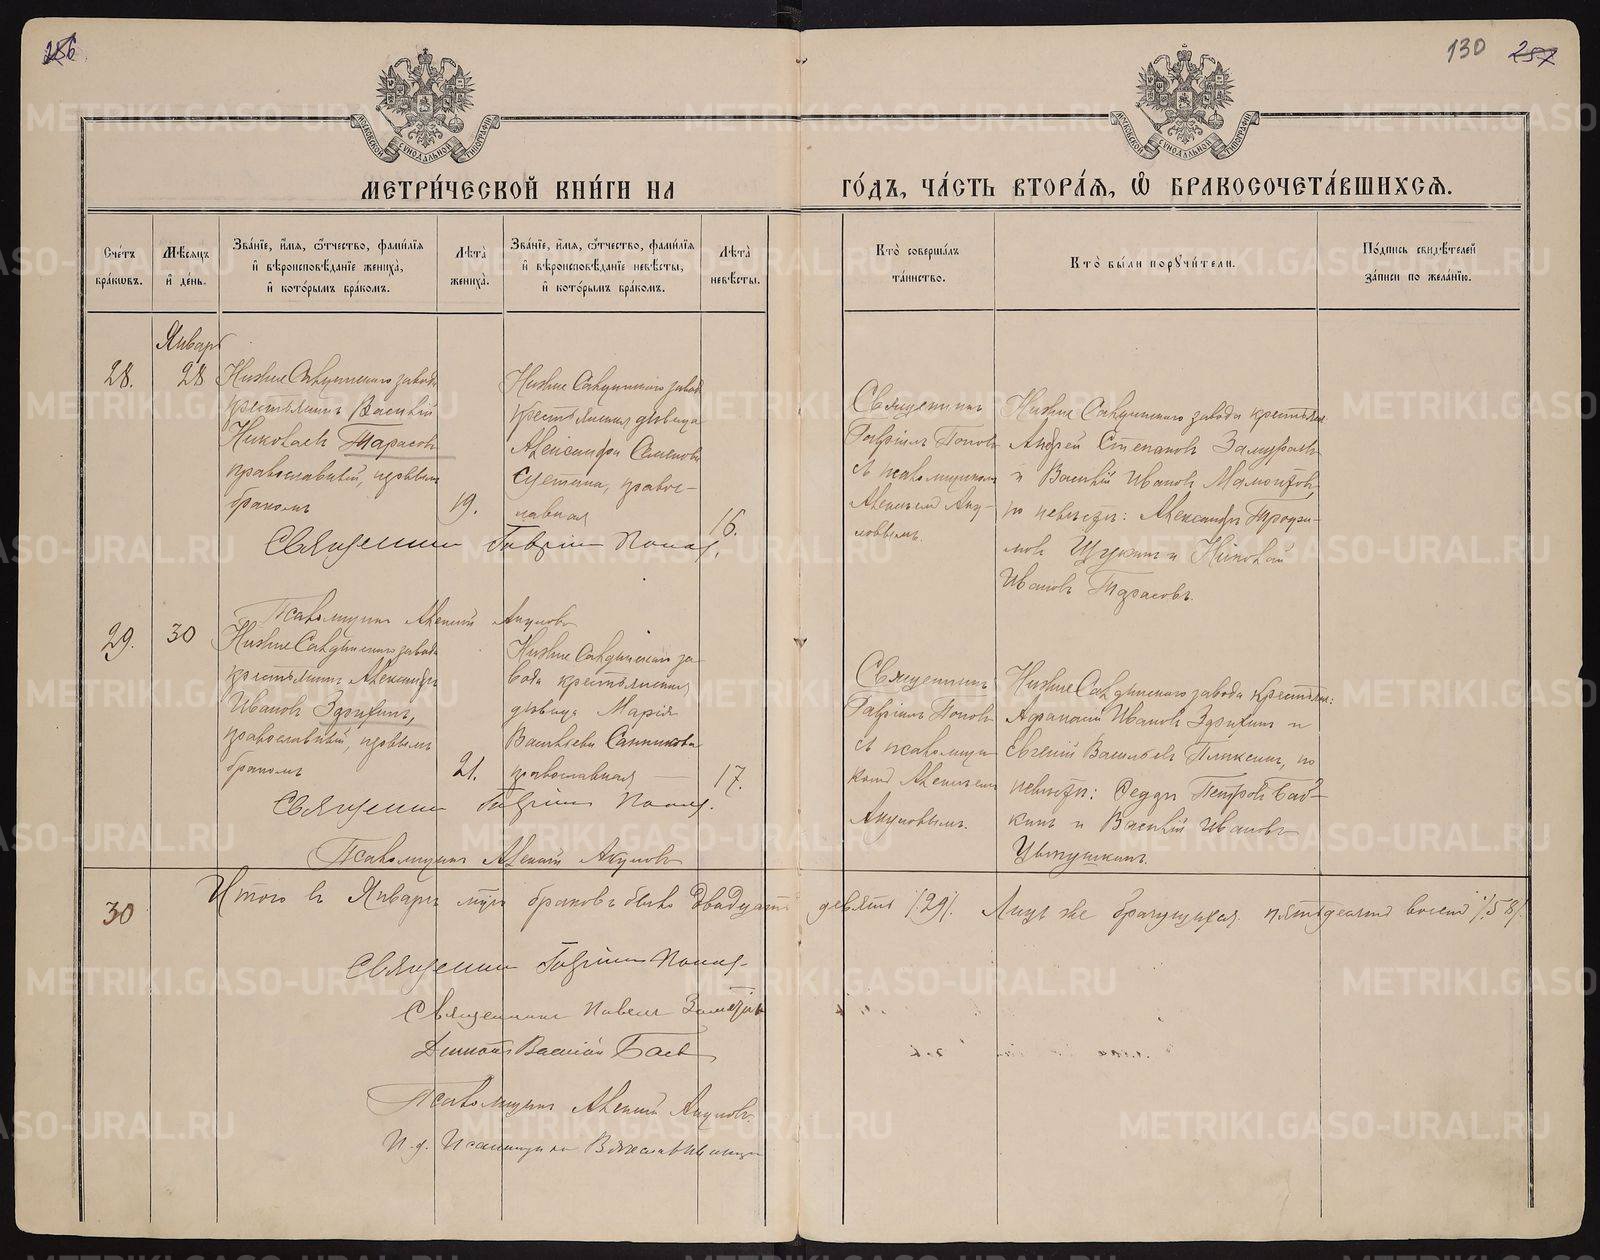 286
130 257
МОСКОВСКОЙ СѴНОДАЛЬНОЙ ТИПОГРАФІИ
МОСКОВСКОЙ СѴНОДАЛЬНОЙ ТИПОГРАФІИ
МЕТРИ́ЧЕСКОЙ КНИ́ГИ НА ГО́ДЪ, ЧА́СТЬ ВТОРА́Я, Ѽ БРАКОСОЧЕТА́ВШИХСЯ.
Сче́тъ
бра́кѡвъ.
Мѣ́сяцъ
и҆ де́нь.
Зва́нїе, и҆́мя, ѻ҆́тчество, фами́лїя
и҆ вѣроисповѣ́данїе жениха̀,
и҆ кото́рымъ бра́комъ.
Лѣ́та
жениха̀.
Зва́нїе, и҆́мя, ѻ҆́тчество, фами́лїя
и҆ вѣроисповѣ́данїе невѣ́сты,
и҆ кото́рымъ бра́комъ.
Лѣ́та
невѣ́сты.
Кто̀ соверша́лъ
та́инство.
Кто̀ бы́ли порꙋчи́тели.
По́дпись свидѣ́телей
за́писи по жела́нїю.
Январь
28.
28
Нижне Салдинскаго завода
крестьянинъ Василій
Николаевъ Тарасовъ
православный, первымъ
бракомъ
19.
Нижне Салдинскаго завода
крестьянская дѣвица
Александра Семенова
православная
16.
Священникъ
Гавріилъ Поповъ
съ псаломщикомъ
Алексѣемъ Аку-
ловымъ.
Нижне Салдинскаго завода крестьяне
Андрей Степановъ Замураевъ
и Василій Ивановъ Мамонтовъ,
по невѣстѣ: Александръ Трофи-
мовъ Щукинъ и Николай
Ивановъ Тарасовъ.
Священникъ Гавріилъ Поповъ.
Псаломщикъ Алексѣй Акуловъ
29.
30
Нижне Салдинскаго завода
крестьянинъ Александръ
Ивановъ Зорихинъ,
православный, первымъ
бракомъ
21.
Нижне Салдинскаго за-
вода крестьянская
дѣвица Марія
Васильева Санникова
православная
17.
Священникъ
Гавріилъ Поповъ
съ псаломщи-
комъ Алексѣемъ
Акуловымъ.
Нижне Салдинскаго завода крестьяне:
Афанасій Ивановъ Зорихинъ и
Евгеній Васильевъ по
невѣстѣ: Федоръ Петровъ Баб-
кинъ и Василій Ивановъ
Священникъ Гавріилъ Поповъ.
Псаломщикъ Алексѣй Акуловъ
30
Итого въ Январѣ м-цѣ браковъ было двадцать девять /29/. Лицъ же брачущихся пятьдесятъ восемь /58/.
Священникъ Гавріилъ Поповъ
Священникъ Павелъ
Діаконъ Василій Баевъ
Псаломщикъ Алексѣй Акуловъ.
И. д. Псаломщика
METRIKI.GASO-URAL.RU